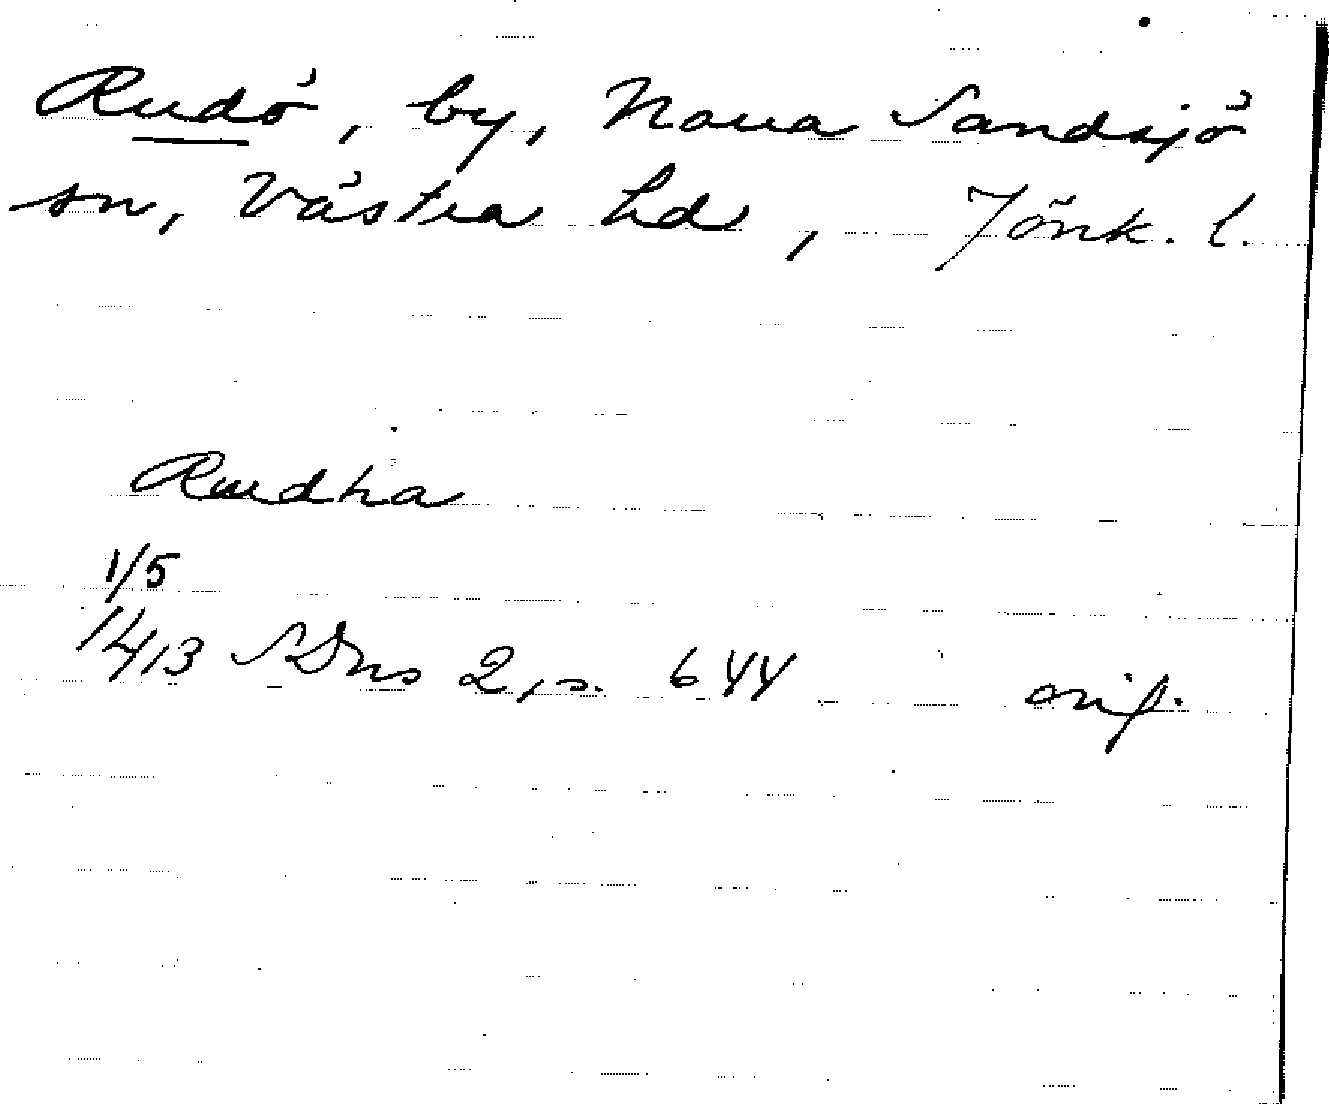 Rudö, by, Norra Sandsjö
sn, Västra hd, Jönk. l.
Rudha
1/5
1413 SDns 2, s. 644 orig.